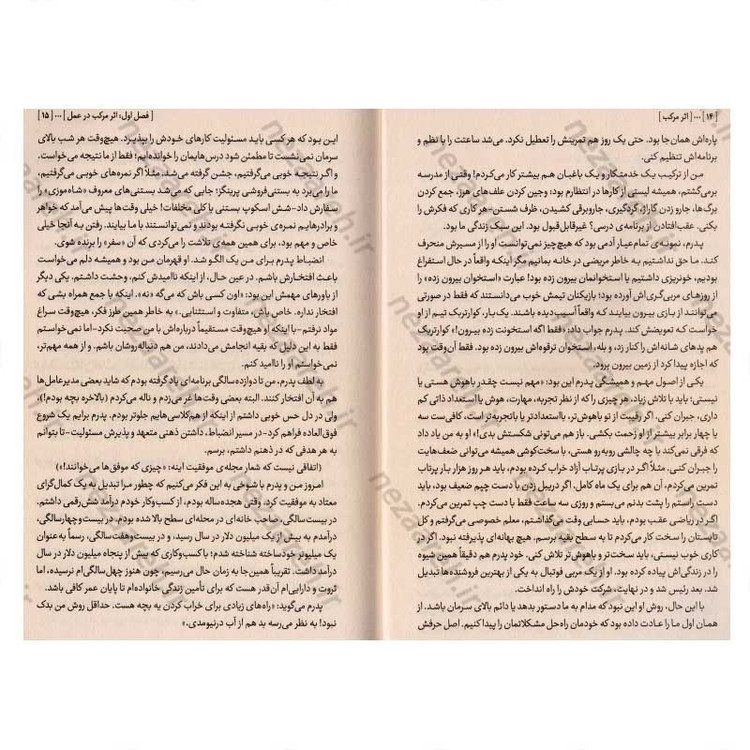 [ ۱۴ ] ... [ اثر مرکب ]
پاره‌اش همان‌جا بود. حتی یک روز هم تمرینش را تعطیل نکرد. می‌شد ساعتت را با نظم و
برنامه‌اش تنظیم کنی.
من از ترکیب یک خدمتکار و یک باغبان هم بیشتر کار می‌کردم! وقتی از مدرسه
برمی‌گشتم، همیشه لیستی از کارها در انتظارم بود: وجین کردن علف‌های هرز، جمع کردن
برگ‌ها، جارو زدن گاراژ، گردگیری، جاروبرقی کشیدن، ظرف شستن-هر کاری که فکرش را
بکنی. عقب‌افتادن از برنامه‌ی درسی؟ غیرقابل‌قبول بود. این سبک زندگی ما بود.
پدرم، نمونه‌ی تمام‌عیار آدمی بود که هیچ‌چیز نمی‌توانست او را از مسیرش منحرف
کند. ما حق نداشتیم به خاطر مریضی در خانه بمانیم مگر اینکه واقعاً در حال استفراغ
بودیم، خونریزی داشتیم یا استخوانمان بیرون زده بود! عبارت «استخوان بیرون زده» را
از روزهای مربی‌گری‌اش آورده بود؛ بازیکنان تیمش خوب می‌دانستند که فقط در صورتی
می‌توانند از بازی بیرون بیایند که واقعاً آسیب دیده باشند. یک بار، کوارتربک تیم از او
خواست که تعویضش کند. پدرم جواب داد: «فقط اگه استخونت زده بیرون!» کوارتربک
هم پدهای شانه‌اش را کنار زد، و بله، استخوان ترقوه‌اش بیرون زده بود. فقط آن‌وقت بود
که اجازه پیدا کرد از زمین بیرون برود.
یکی از اصول مهم و همیشگی پدرم این بود: «مهم نیست چقدر باهوش هستی یا
نیستی؛ باید با تلاش زیاد، هر چیزی را که از نظر تجربه، مهارت، هوش یا استعداد ذاتی کم
داری، جبران کنی. اگر رقیبت از تو باهوش‌تر، بااستعدادتر یا باتجربه‌تر است، کافی‌ست سه
یا چهار برابر بیشتر از او زحمت بکشی. باز هم می‌تونی شکستش بدی!» او به من یاد داد
که فرقی نمی‌کند با چه چالشی روبه‌رو هستی، با سخت‌کوشی همیشه می‌توانی ضعف‌هایت
را جبران کنی. مثلاً اگر در بازی پرتاب آزاد خراب کرده بودم، باید هر روز هزار بار پرتاب
تمرین می‌کردم، آن هم برای یک ماه کامل. اگر در دریبل زدن با دست چپم ضعیف بود، باید
دست راستم را پشت بدنم می‌بستم و روزی سه ساعت فقط با دست چپ تمرین می‌کردم.
اگر در ریاضی عقب بودم، باید حسابی وقت می‌گذاشتم، معلم خصوصی می‌گرفتم و کل
تابستان را سخت کار می‌کردم تا به سطح بقیه برسم. هیچ بهانه‌ای پذیرفته نبود. اگر در
کاری خوب نیستی، باید سخت‌تر و باهوش‌تر تلاش کنی. خود پدرم هم دقیقاً همین شیوه
را در زندگی‌اش پیاده کرده بود. او از یک مربی فوتبال به یکی از بهترین فروشنده‌ها تبدیل
شد. بعد رئیس شد و در نهایت، شرکت خودش را راه انداخت.
با این حال، روش او این نبود که مدام به ما دستور بدهد یا دائم بالای سرمان باشد. از
همان اول ما را عادت داده بود که خودمان راه‌حل مشکلاتمان را پیدا کنیم. اصل حرفش
[ فصل اول، اثر مرکب در عمل ] ... [ ۱۵ ]
این بود که هر کسی باید مسئولیت کارهای خودش را بپذیرد. هیچ‌وقت هر شب بالای
سرمان نمی‌نشست تا مطمئن شود درس‌هایمان را خوانده‌ایم؛ فقط از ما نتیجه می‌خواست.
و اگر نتیجه خوبی می‌گرفتیم، جشن گرفته می‌شد. مثلاً اگر نمره‌های خوبی می‌گرفتیم،
ما را می‌برد به بستنی‌فروشی پرینگز؛ جایی که می‌شد بستنی‌های معروف «شاه‌موزی» را
سفارش داد-شش اسکوپ بستنی با کلی مخلفات! خیلی وقت‌ها پیش می‌آمد که خواهر
و برادرهایم نمره‌ی خوبی نگرفته بودند و نمی‌توانستند با ما بیایند. رفتن به آنجا خیلی
خاص و مهم بود، برای همین همه‌ی تلاشت را می‌کردی که آن «سفر» را برنده شوی.
انضباط پدرم برای من یک الگو شد. او قهرمان من بود و همیشه دلم می‌خواست
باعث افتخارش باشم. در عین حال، از اینکه ناامیدش کنم، وحشت داشتم. یکی دیگر
از باورهای مهمش این بود: «اون کسی باش که می‌گه «نه». اینکه با جمع همراه بشی که
افتخار نداره. خاص باش، متفاوت و استثنایی.» به خاطر همین طرز فکر، هیچ‌وقت سراغ
مواد نرفتم-با اینکه او هیچ‌وقت مستقیماً درباره‌اش با من صحبت نکرد-اما نمی‌خواستم
فقط به این دلیل که بقیه انجامش می‌دادند، من هم دنباله‌روشان باشم. و از همه مهم‌تر،
نمی‌خواستم او را ناامید کنم.
به لطف پدرم، من تا دوازده سالگی برنامه‌ای یاد گرفته بودم که شاید بعضی مدیرعامل‌ها
هم به آن افتخار کنند. البته بعضی وقت‌ها غر می‌زدم و ناله می‌کردم (بالاخره بچه بودم!)،
ولی در دل حس خوبی داشتم از اینکه از هم‌کلاسی‌هایم جلوتر بودم. پدرم برایم یک شروع
فوق‌العاده فراهم کرد-در مسیر انضباط، داشتن ذهنی متعهد و پذیرش مسئولیت-تا بتوانم
به هر هدفی که در ذهنم داشتم، برسم.
(اتفاقی نیست که شعار مجله‌ی موفقیت اینه: «چیزی که موفق‌ها می‌خوانند!»)
امروز من و پدرم با شوخی به این فکر می‌کنیم که چطور مرا تبدیل به یک کمال‌گرای
معتاد به موفقیت کرد. وقتی هجده‌ساله بودم، از کسب‌وکار خودم درآمد شش‌رقمی داشتم.
در بیست‌سالگی، صاحب خانه‌ای در محله‌ای سطح بالا شده بودم. در بیست‌وچهارسالگی،
درآمدم به بیش از یک میلیون دلار در سال رسید، و در بیست‌وهفت‌سالگی، رسماً به‌عنوان
یک میلیونر خودساخته شناخته شدم؛ با کسب‌وکاری که بیش از پنجاه میلیون دلار در سال
درآمد داشت. تقریباً همین‌جا به زمان حال می‌رسیم، چون هنوز چهل‌سالگی‌ام نرسیده، اما
ثروت و دارایی‌ام آن‌قدر هست که برای تأمین زندگی خانواده‌ام تا پایان عمر کافی باشد.
پدرم می‌گوید: «راه‌های زیادی برای خراب کردن یه بچه هست. حداقل روش من بدک
نبود! به نظر می‌رسه بد هم از آب درنیومدی.»
nezaareh.ir